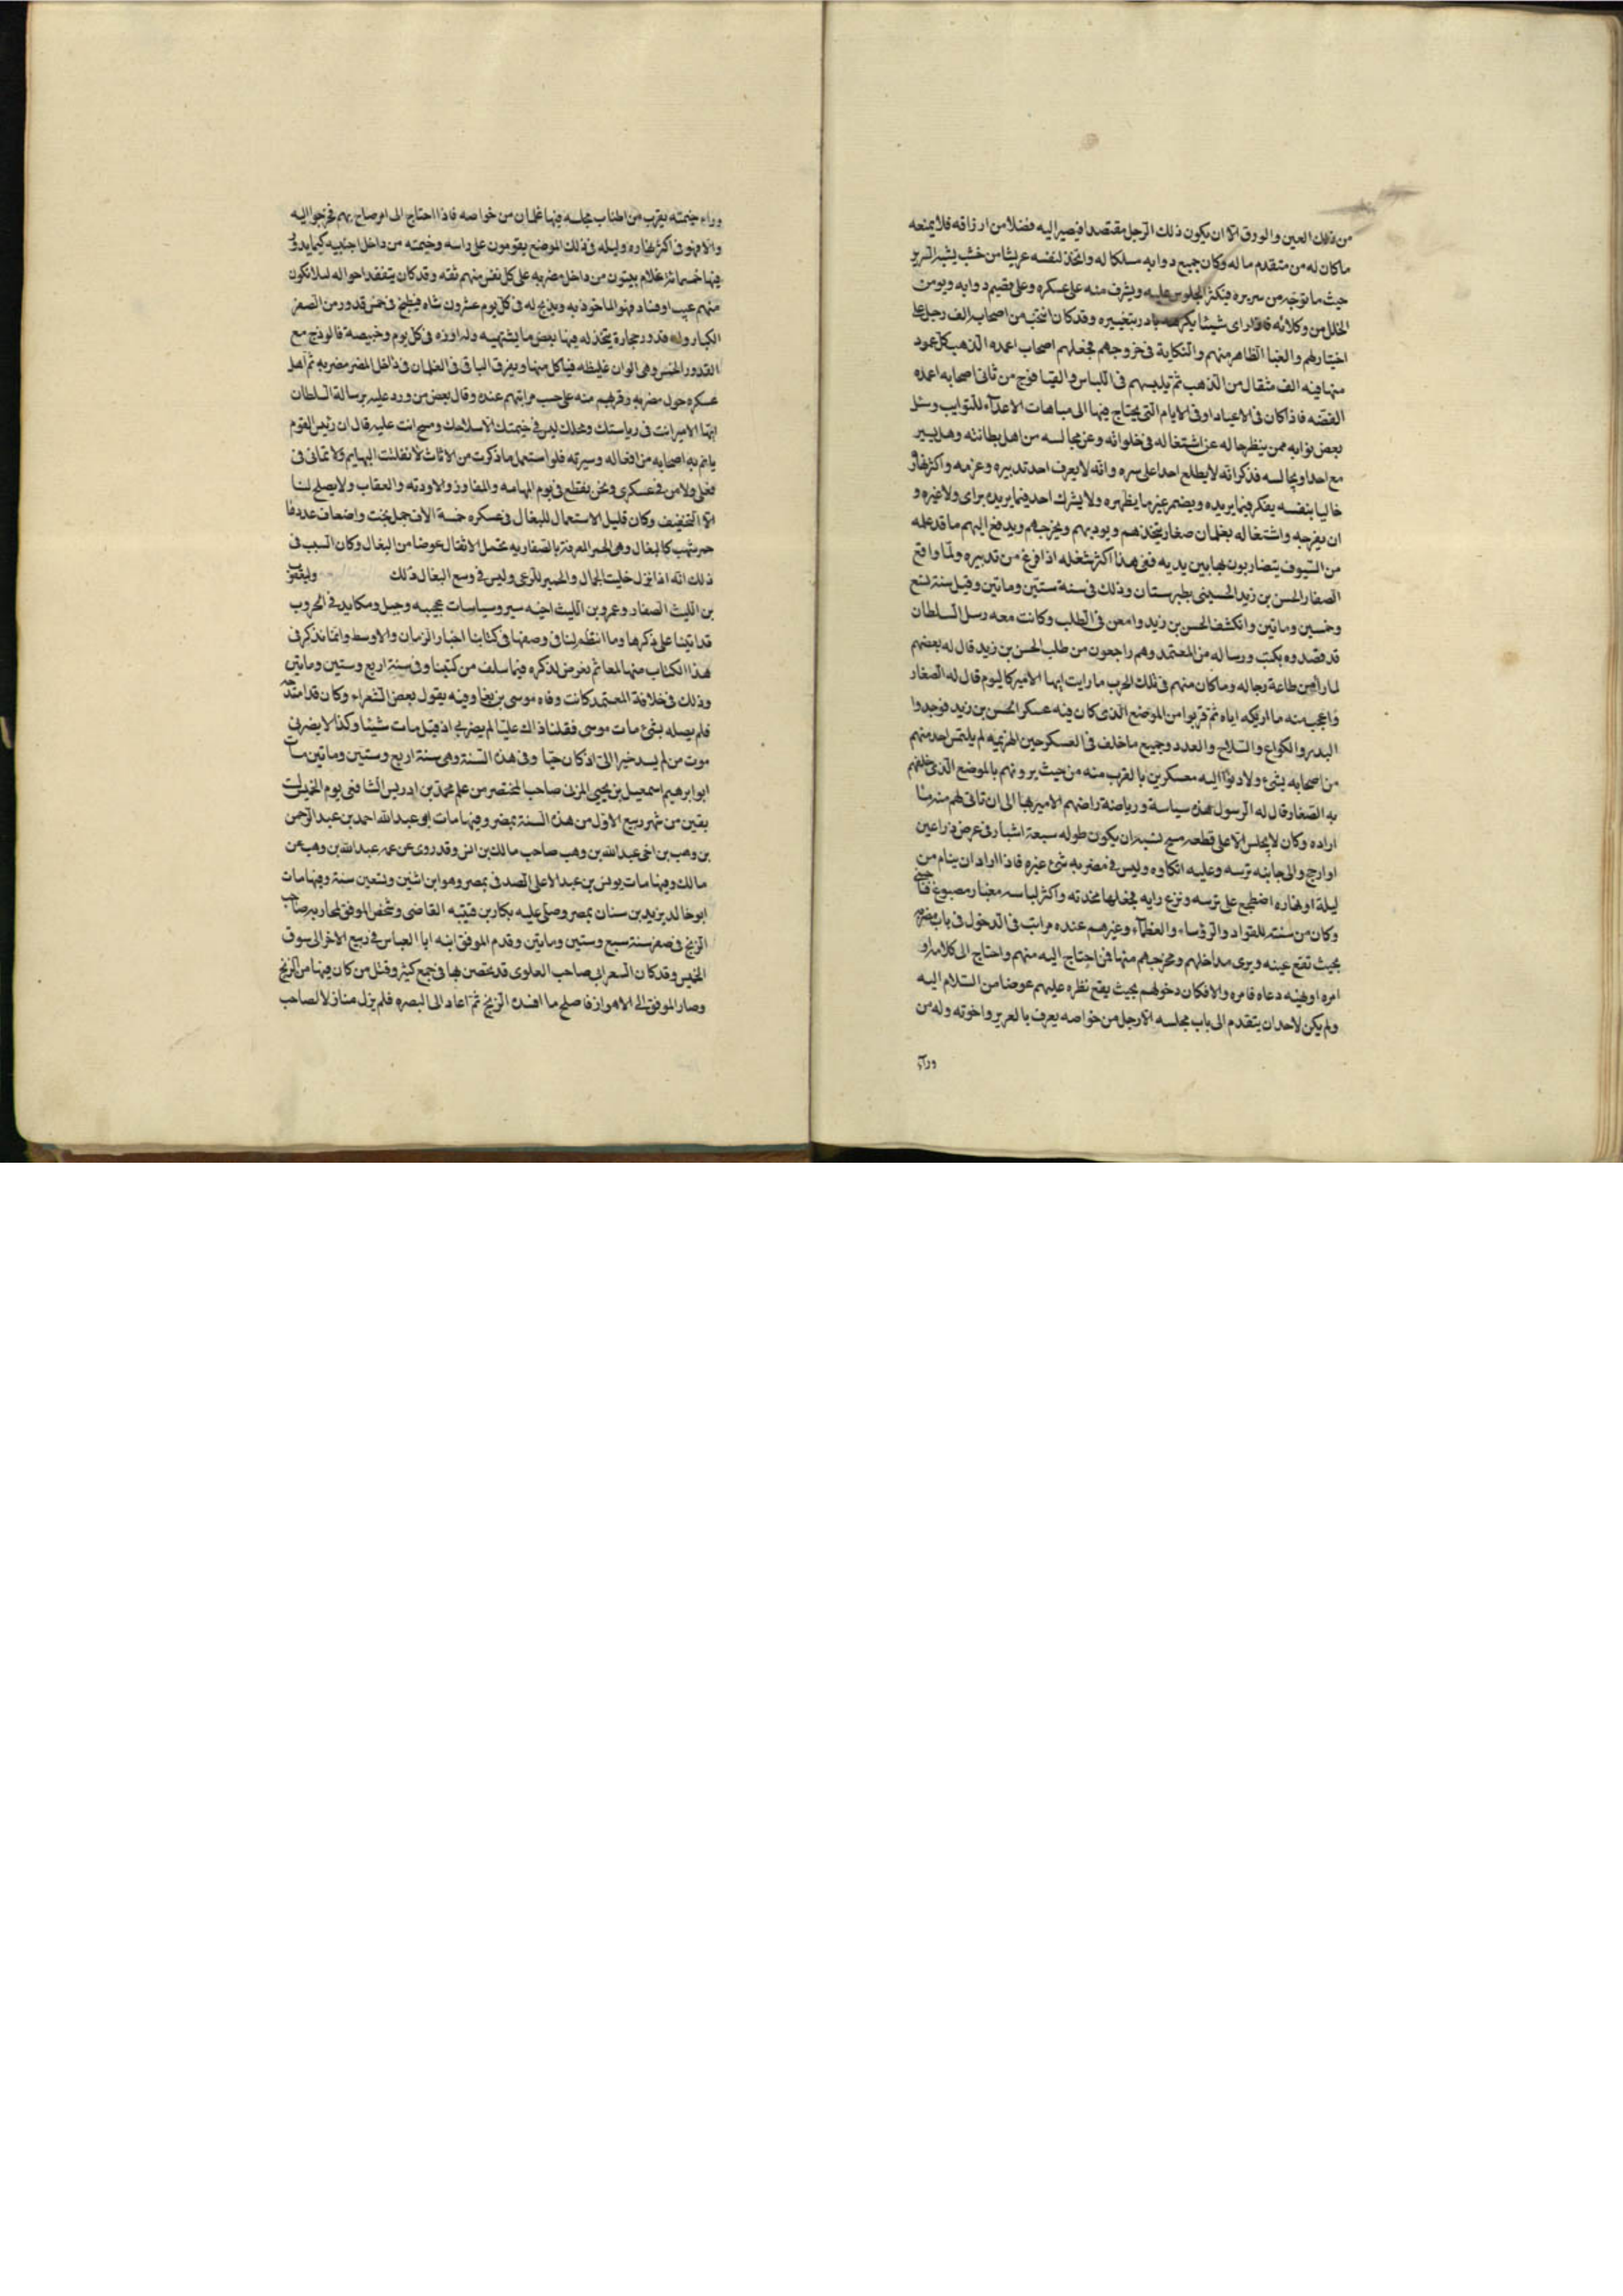 من ذلك العين والورق الا ان يكون ذلك الرجل مقتصدا فيصير اليه فضلا من ارزاقه فلا يمنعه
ما كان له من متقدم ماله وكان جميع دوابه سلكا له واتخذ لنفسه عريشا من خشب يشبه السرير
حيث ما توجه من سريره فيكثر الجلوس عليه ويشرف منه على عسكره وعلى قضيم دوابه ويومن
الخلل من وكلائه فاذا راى شيئا يكرهه بادر بتغييره وقد كان انتخب من اصحابه الف رجل على
اختيار لهم والغنا الظاهر منهم والنكاية فى خروجهم فجعلهم اصحاب اعمده الذهب كل عود
منها فيه الف مثقال من الذهب ثم يليهم فى اللباس والقيا فوج من ثانى اصحابه اعمده
الفضه فاذا كان فى الاعياد او فى الايام التى يحتاج فيها الى مباهات الاعدآء للنوايب وسئل
بعض نوابه ممن ينظر حاله عن اشتغاله فى خلواته وعن مجالسه من اهل بطانته وهل يسير
مع احد او يجالسه فذكر انه لا يطلع احدا على سره وانه لا يعرف احد تدبيره وعزمه واكثر نهاره
خاليا بنفسه يفكر فيما يريده ويضمر غير ما يظهره ولا يشرك احد فيما يريده براى ولا غيره و
ان يفرجه واشتغاله بغلمان صغار يتخذهم ويوديهم ويخرجهم ويدفع اليهم ما قد عمله
من السيوف يتضاربون بها بين يديه ففى هذا اكثر شغله اذا فرغ من تدبيره ولما واقع
الصفار الحسن بن زيد الحسينى بطبرستان وذلك فى سنة ستين وماتين وقيل سنة تسع
وخمسين وماتين وانكشف الحسن بن زيد وامعن فى الطلب وكانت معه رسل السلطان
قد قصدوه بكتب ورساله من المعتمد وهم راجعون من طلب الحسن بن زيد قال له بعضهم
لما راى من طاعة رجاله وما كان منهم فى تلك الحرب ما رايت ايها الامير كاليوم قال له الصفار
واعجب منه ما اريكه اياه ثم قربوا من الموضع الذى كان فيه عسكر الحسن بن زيد فوجدوا
البدر والكراع والسلاح والعدد وجميع ما خلف فى العسكر حين الهزيمه لم يلتمس احد منهم
من اصحابه بشئ ولا دنوا اليه معسكرين بالقرب منه من حيث يرونهم بالموضع الذى خلفهم
به الصفار قال له الرسول هذه سياسة ورياضة راضهم الامير بها الى ان تاتى لهم منهم ما
اراده وكان لا يجلس الا على قطعه مسح لشبه ان يكون طوله سبعة اشبار فى عرض ذراعين
او ارجح والى جانبه ترسه وعليه اتكاوه وليس فى مضربه شئ غيره فاذا اراد ان ينام من
ليلة او نهاره اضطجع على ترسه ونزع رايه فجعلها مخدته واكثر لباسه معنبار مصبوغ فاختى
وكان من سنته للقواد والرؤساء والعظمآء وغيرهم عنده مراتب فى الدخول فى باب مضربه
بحيث تقع عينه ويرى مداخلهم ومخرجهم منها فمن احتاج اليه منهم واحتاج الى كلامه او
امره او نهيه دعاه فامره والا فكان دخولهم بحيث يقع نظره عليهم عوضا من السلام اليه
ولم يكن لاحد ان يتقدم الى باب مجلسه الا رجل من خواصه يعرف بالعزيز واخوته وله من
ورآء
وراء خيمته يقرب من اطناب مجلسه فيها غلمان من خواصه فاذا احتاج الى امر صاح بهم فخرجوا اليه
والا فهو فى اكثر نهاره وليله فى ذلك الموضع يقومون على راسه وخيمته من داخل اخبيه كما يدور
فيها خمسمائة غلام يبيتون من داخل مضربه على كل نفس منهم ثقه وقد كان يتفقد احواله لىلا تكون
منهم عيب او فساد فهو الماخوذ به ويذبح له فى كل يوم عشرون شاه فيطبخ فى خمس قدور من الصفر
الكبار وله قدور حجارة يتخذ له فيها بعض ما يشتهيه وله ارزه فى كل يوم وخبيصة فالوذج مع
القدور الخمس وهى الوان غليظه فياكل منها ويفرق الباقى فى الغلمان فى داخل المضر مضربه ثم اهل
عسكره حول مضربه وقربهم منه على حسب مراتبهم عنده وقال بعض من ورد عليه برسالة السلطان
ايها الامير انت فى رياستك ومحلك ليس فى خيمتك الا سلاحك ومسح انت عليه قال ان رئيس القوم
ياتم به اصحابه من افعاله وسيرته فلو استعمل ما ذكرت من الاثاث لاثقلت البهايم ولاتمانى فى
فعلى ولا من فى عسكرى ونحن نقتطع فى يوم المهامه والمفاوز والاوديه والعقاب ولا يصلح لنا
الا التخفيف وكان قليل الاستعمال للبغال فى عسكره خمسة الاف جمل بخت واضعاف عددها
حمير شهب كالبغال وهى الحمر المعرفة بالصفاريه تحتمل الاثقال عوضا من البغال وكان السبب فى
ذلك انه اذا نزل خليت الجمال والحمير للرعى وليس فى وسع البغال ذلك وليعقوب
بن الليث الصفار وعمرو بن الليث اخيه سير وسياسات عجيبه وحيل ومكايد فى الحروب
قد اتينا على ذكرها وما انتظم لنا فى وصفها فى كتابنا اخبار الزمان والاوسط وانما نذكر فى
هذا الكتاب منها لمعا ثم نعرض لذكره فيما سلف من كتبنا وفى سنة اربع وستين وماتين
وذلك فى خلافة المعتمد كانت وفاه موسى بن بغا وفيه يقول بعض الشعراء وكان قد امتدحه
فلم يصله بشئ مات موسى فقلنا ذاك علينا لم يضربى اذ قيل مات شيئا وكذا لا يضرنى
موت من لم يسد خيرا الى اذ كان حيا وفى هذه السنة وهى سنة اربع وستين وماتين مات
ابو ابرهيم اسمعيل بن يحيى المزنى صاحب المختصر من علم محمد بن ادريس الشافعى يوم الخميس لست
بقين من شهر ربيع الاول من هذه السنة بمصر وفيها مات ابو عبدالله احمد بن عبد الرحمن
بن وهب بن اخى عبدالله بن وهب صاحب مالك بن انس وقد روى عن عمه عبدالله بن وهب عن
مالك وفيها مات يونس بن عبد الاعلى الصدفى بمصر وهو ابن اثنين وتسعين سنة وفيها مات
ابو خالد يزيد بن سنان بمصر وصلى عليه بكار بن قتيبه القاضى وشخص الموفق لمحاربه صاحب
الزنج فى صفر سنة سبع وستين وماتين وقدم الموفق ابنه ابا العباس فى ربيع الاخر الى سوق
الخميس وقد كان الشعرانى صاحب العلوى قد تحصن بها فى جمع كثير وقتل من كان فيها من الزنج
وصار الموفق الى الاهواز فاصلح ما افسده الزنج ثم اعاد الى البصره فلم يزل منازلا لصاحب